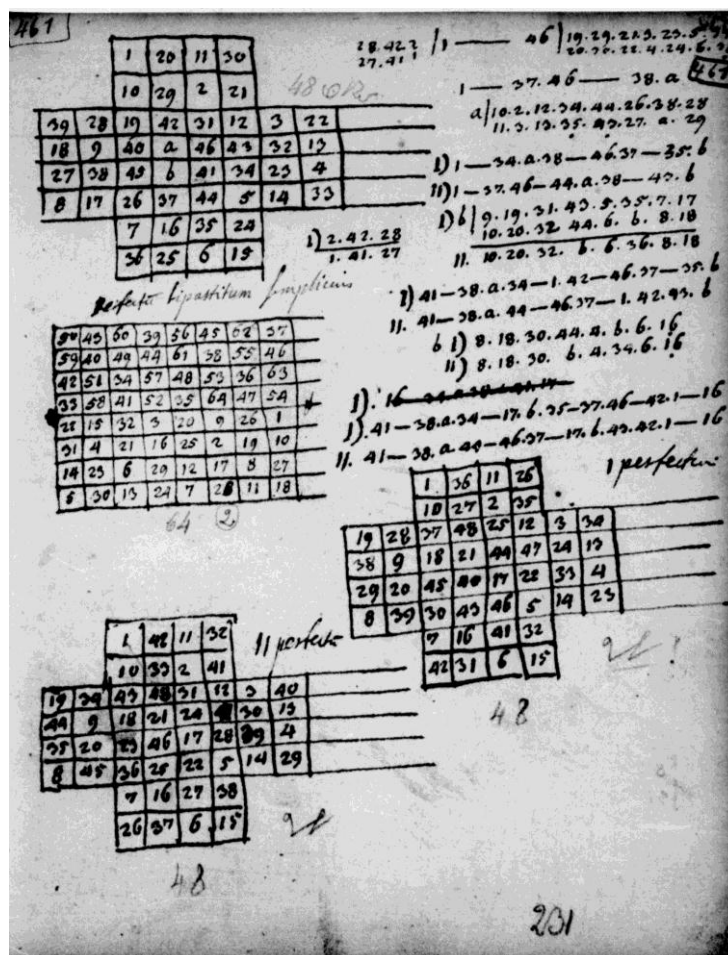 461
1 20 11 30
10 29 2 21
39 28 19 42 31 12 3 22
18 9 40 a 46 43 32 13
27 38 45 b 41 34 23 4
8 17 26 37 44 5 14 33
7 16 35 24
36 25 6 15
28.42.2
27.41.1
1 — 46
1 — 37.46 — 38.a
a 10.2.12.34.44.26.38.28
11.3.13.35.43.27.a.29
I) 1 — 34.a.38 — 46.37 — 35.b
II) 1 — 37.46 — 44.a.38 — 43.b
I) b 9.19.31.43.5.35.7.17
10.20.32.44.6.b.8.18
II. 10.20.32.b.6.36.8.18
1) 2.42.28
1.41.27
I) 41 — 38.a.34 — 1.42 — 46.37 — 35.b
II. 41 — 38.a.44 — 46.37 — 1.42.43.b
b I) 8.18.30.44.4.b.6.16
II) 8.18.30.b.4.34.6.16
I). 41 — 38.a.34 — 17.b.35 — 37.46 — 42.1 — 16
II. 41 — 38.a.44 — 46.37 — 17.b.43.42.1 — 16
50 43 60 39 56 45 62 37
59 40 49 44 61 38 55 46
42 51 34 57 48 53 36 63
33 58 41 52 35 64 47 54
22 15 32 3 20 9 26 1
31 4 21 16 25 2 19 10
14 23 6 29 12 17 8 27
5 30 13 24 7 28 11 18
64 2
I perfecte
1 36 11 26
10 27 2 35
19 28 37 48 25 12 3 34
38 9 18 21 44 47 24 13
29 20 45 40 17 22 33 4
8 39 30 43 46 5 14 23
7 16 41 32
42 31 6 15
48
II perfecte
1 42 11 32
10 33 2 41
19 34 43 48 31 12 3 40
44 9 18 21 24 30 13
35 20 23 46 17 28 39 4
8 45 36 25 22 5 14 29
7 16 27 38
26 37 6 15
48
231